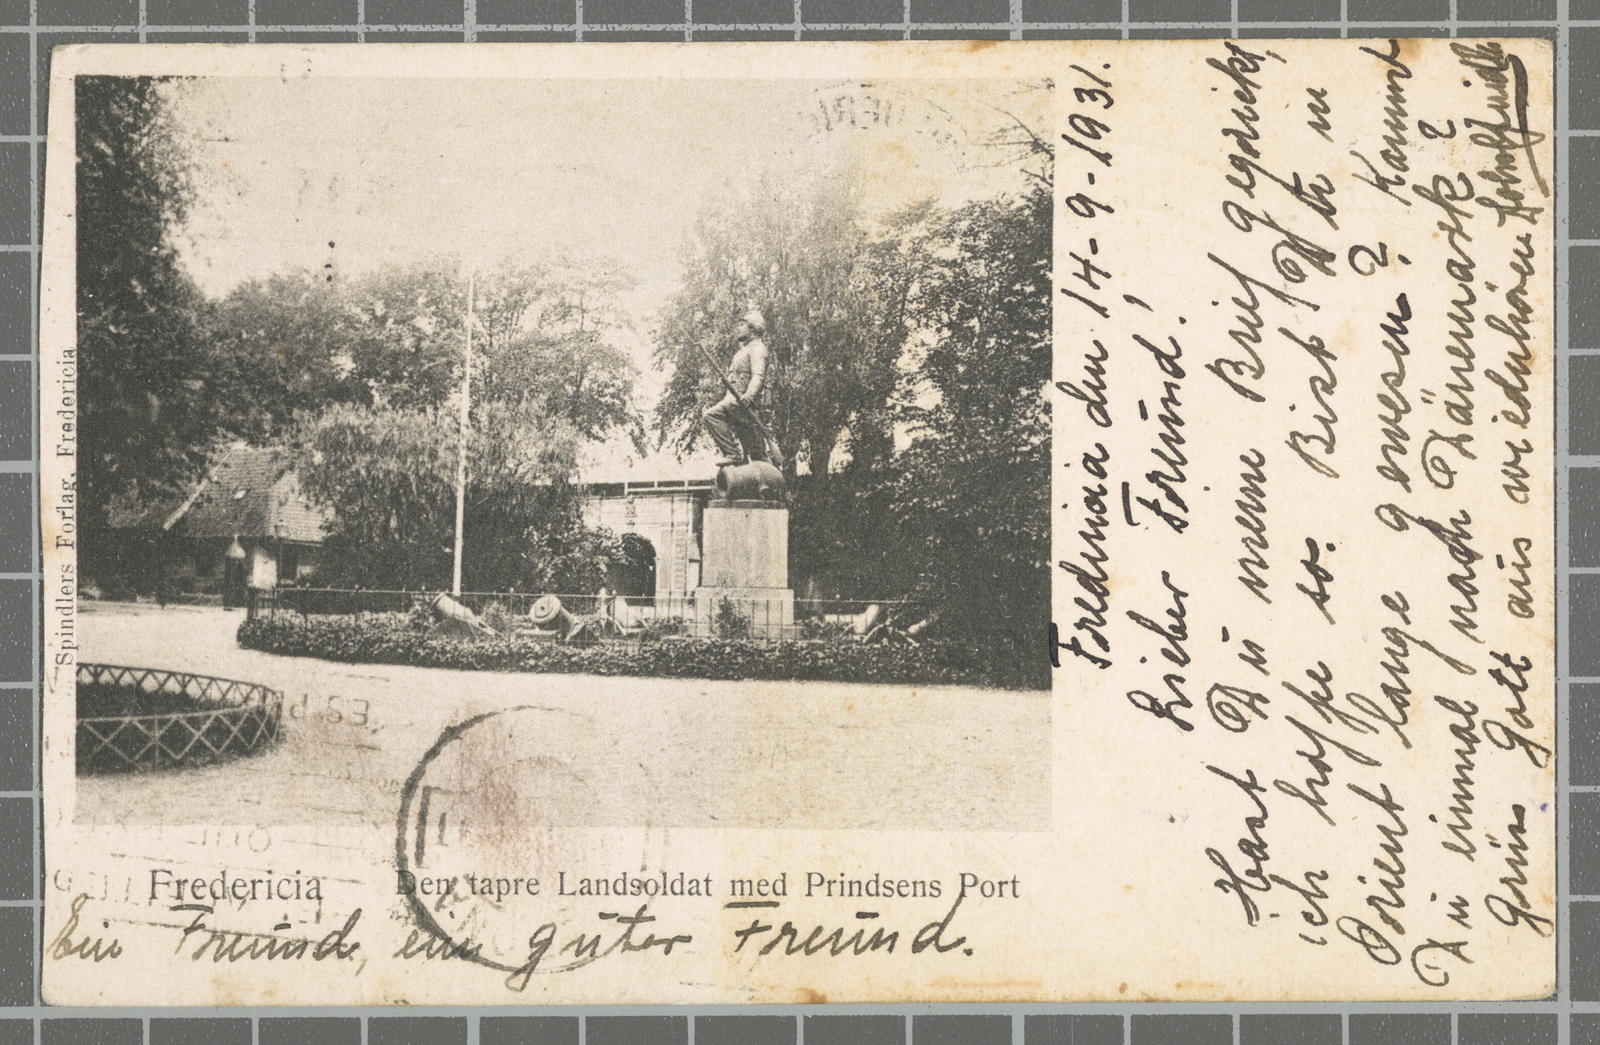 Spindlers Forlag, Fredericia
Fredericia Den tapre Landsoldat med Prindsens Port
Ein Freund, ein guter Freund.
Fredericia den 14-9-1931.
Lieber Freund!
Hast Du meinen Brief gekriekt,
ich hoffe so. Bist Du in
Orient lange gewesen? Kommt
Du einmal nach Dänemark?
Grüss Gott aus wiederhören